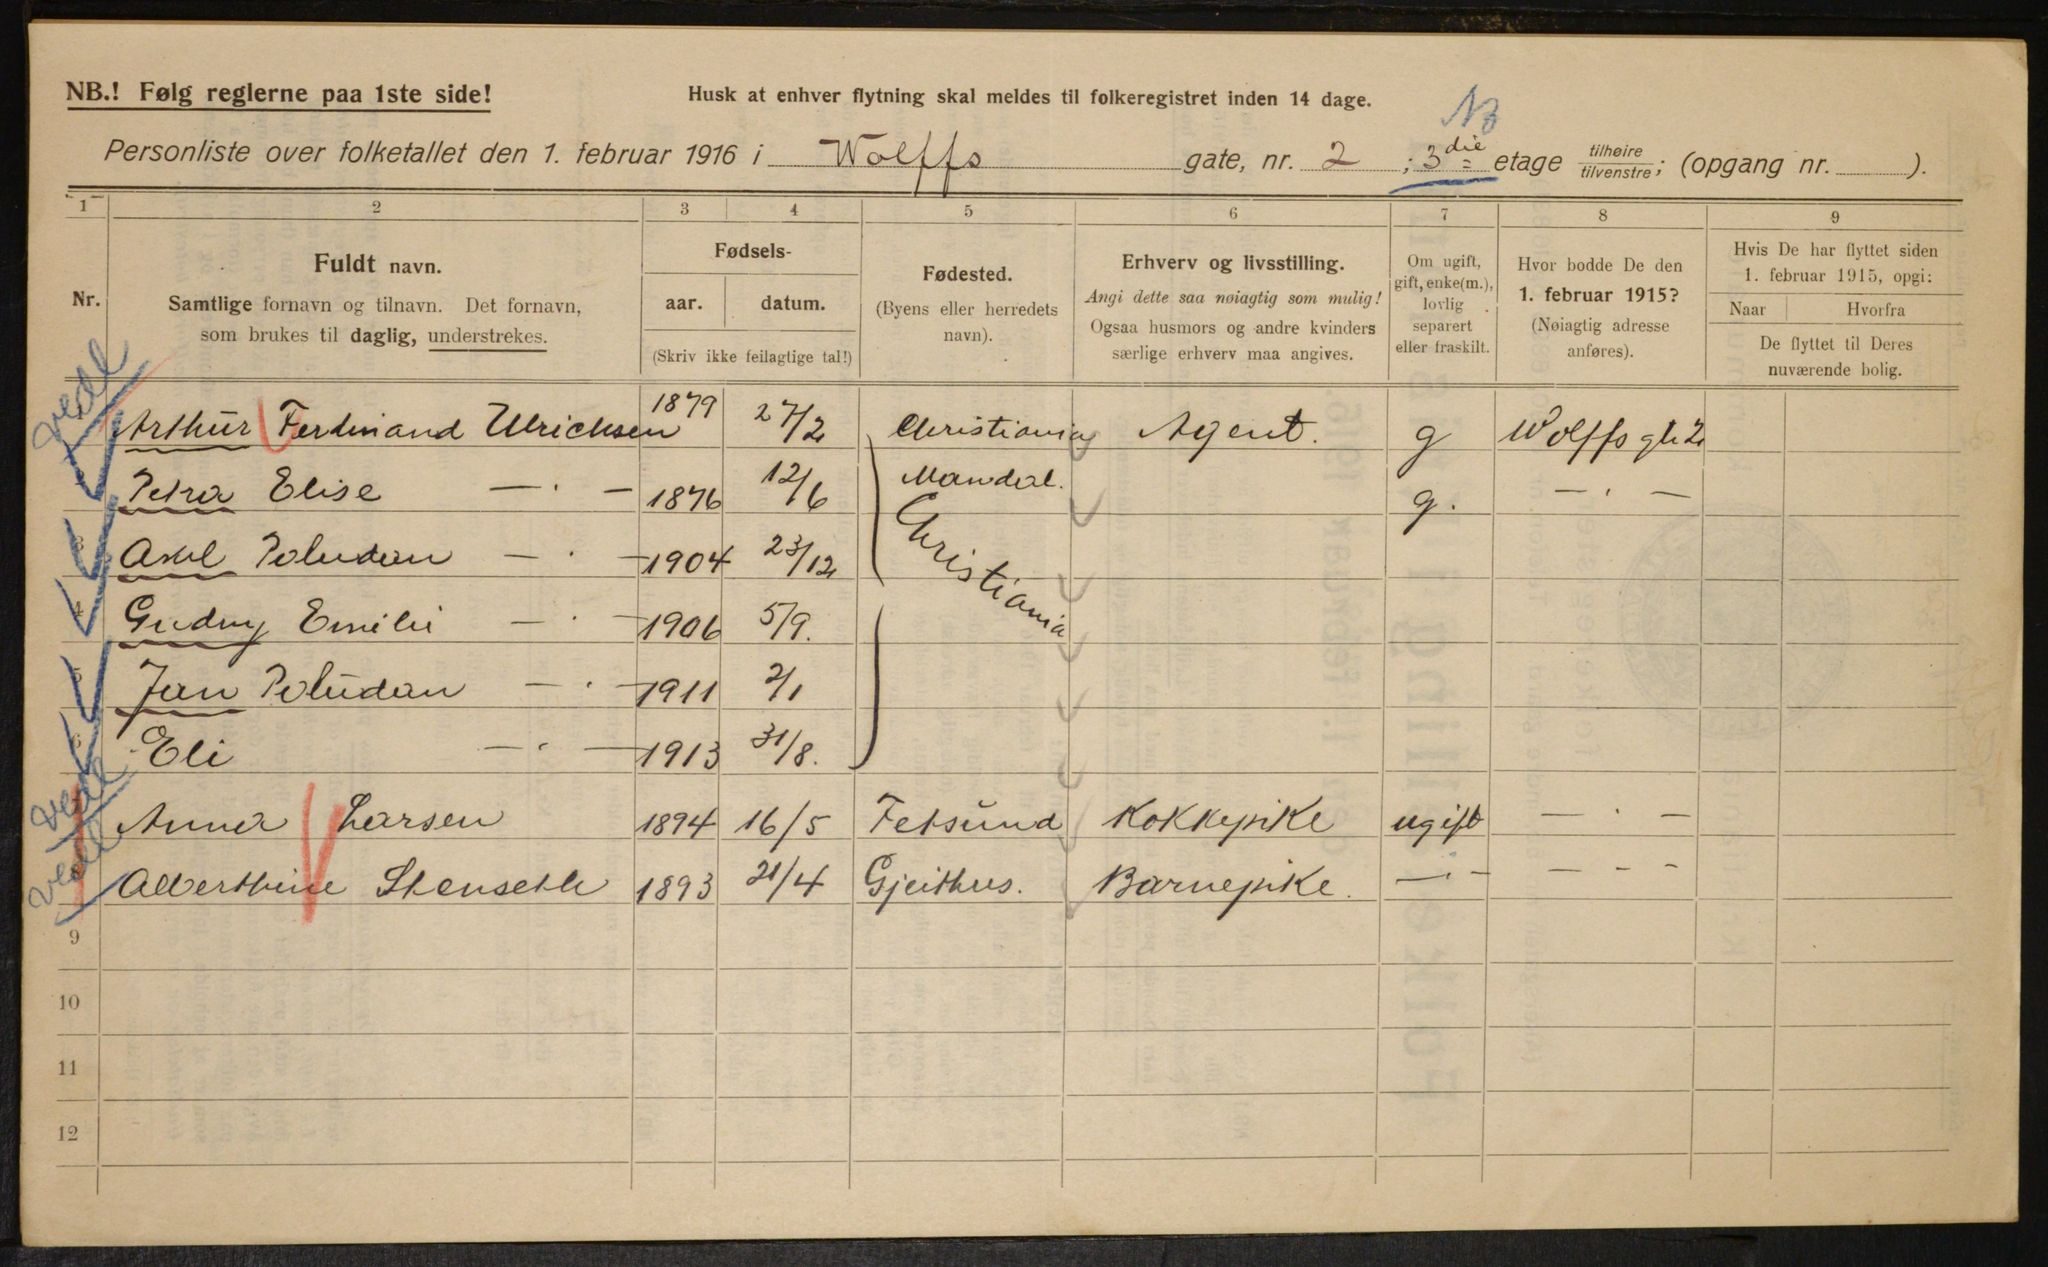 NB.! Følg reglerne paa 1ste side!
Husk at enhver flytning skal meldes til folkeregistret inden 14 dage.
NB
Personliste over folketallet den 1. februar 1916 i Wolffs gate, nr. 2 ; 3die etage tilhøire/tilvenstre; (opgang nr. ).
1 2 3 4 5 6 7 8 9
Nr.
Fuldt navn.
Samtlige fornavn og tilnavn. Det fornavn,
som brukes til daglig, understrekes.
Fødsels-
aar. datum.
(Skriv ikke feilagtige tal!)
Fødested.
(Byens eller herredets
navn).
Erhverv og livsstilling.
Angi dette saa nøiagtig som mulig!
Ogsaa husmors og andre kvinders
særlige erhverv maa angives.
Om ugift,
gift, enke(m.),
lovlig
separert
eller fraskilt.
Hvor bodde De den
1. februar 1915?
(Nøiagtig adresse
anføres).
Hvis De har flyttet siden
1. februar 1915, opgi:
Naar Hvorfra
De flyttet til Deres
nuværende bolig.
vedl
Arthur Ferdinand Ulrichsen 1879 27/2 Christiania Agent. g Wolffs gt 2
Petra Elise — " — 1876 12/6 Mandal. g. — " —
3 Axel Paludan — " — 1904 23/12 Christiania
4 Gudny Emilie — " — 1906 5/9.
5 Jan Paludan — " — 1911 2/1
6 Eli — " — 1913 31/8.
vedl
Anna Larsen 1894 16/5 Fetsund Kokkepike ugift — " —
vedl
Alberthine Stenseth 1893 21/4 Gjeithus. Barnepike. — " — — " —
9
10
11
12